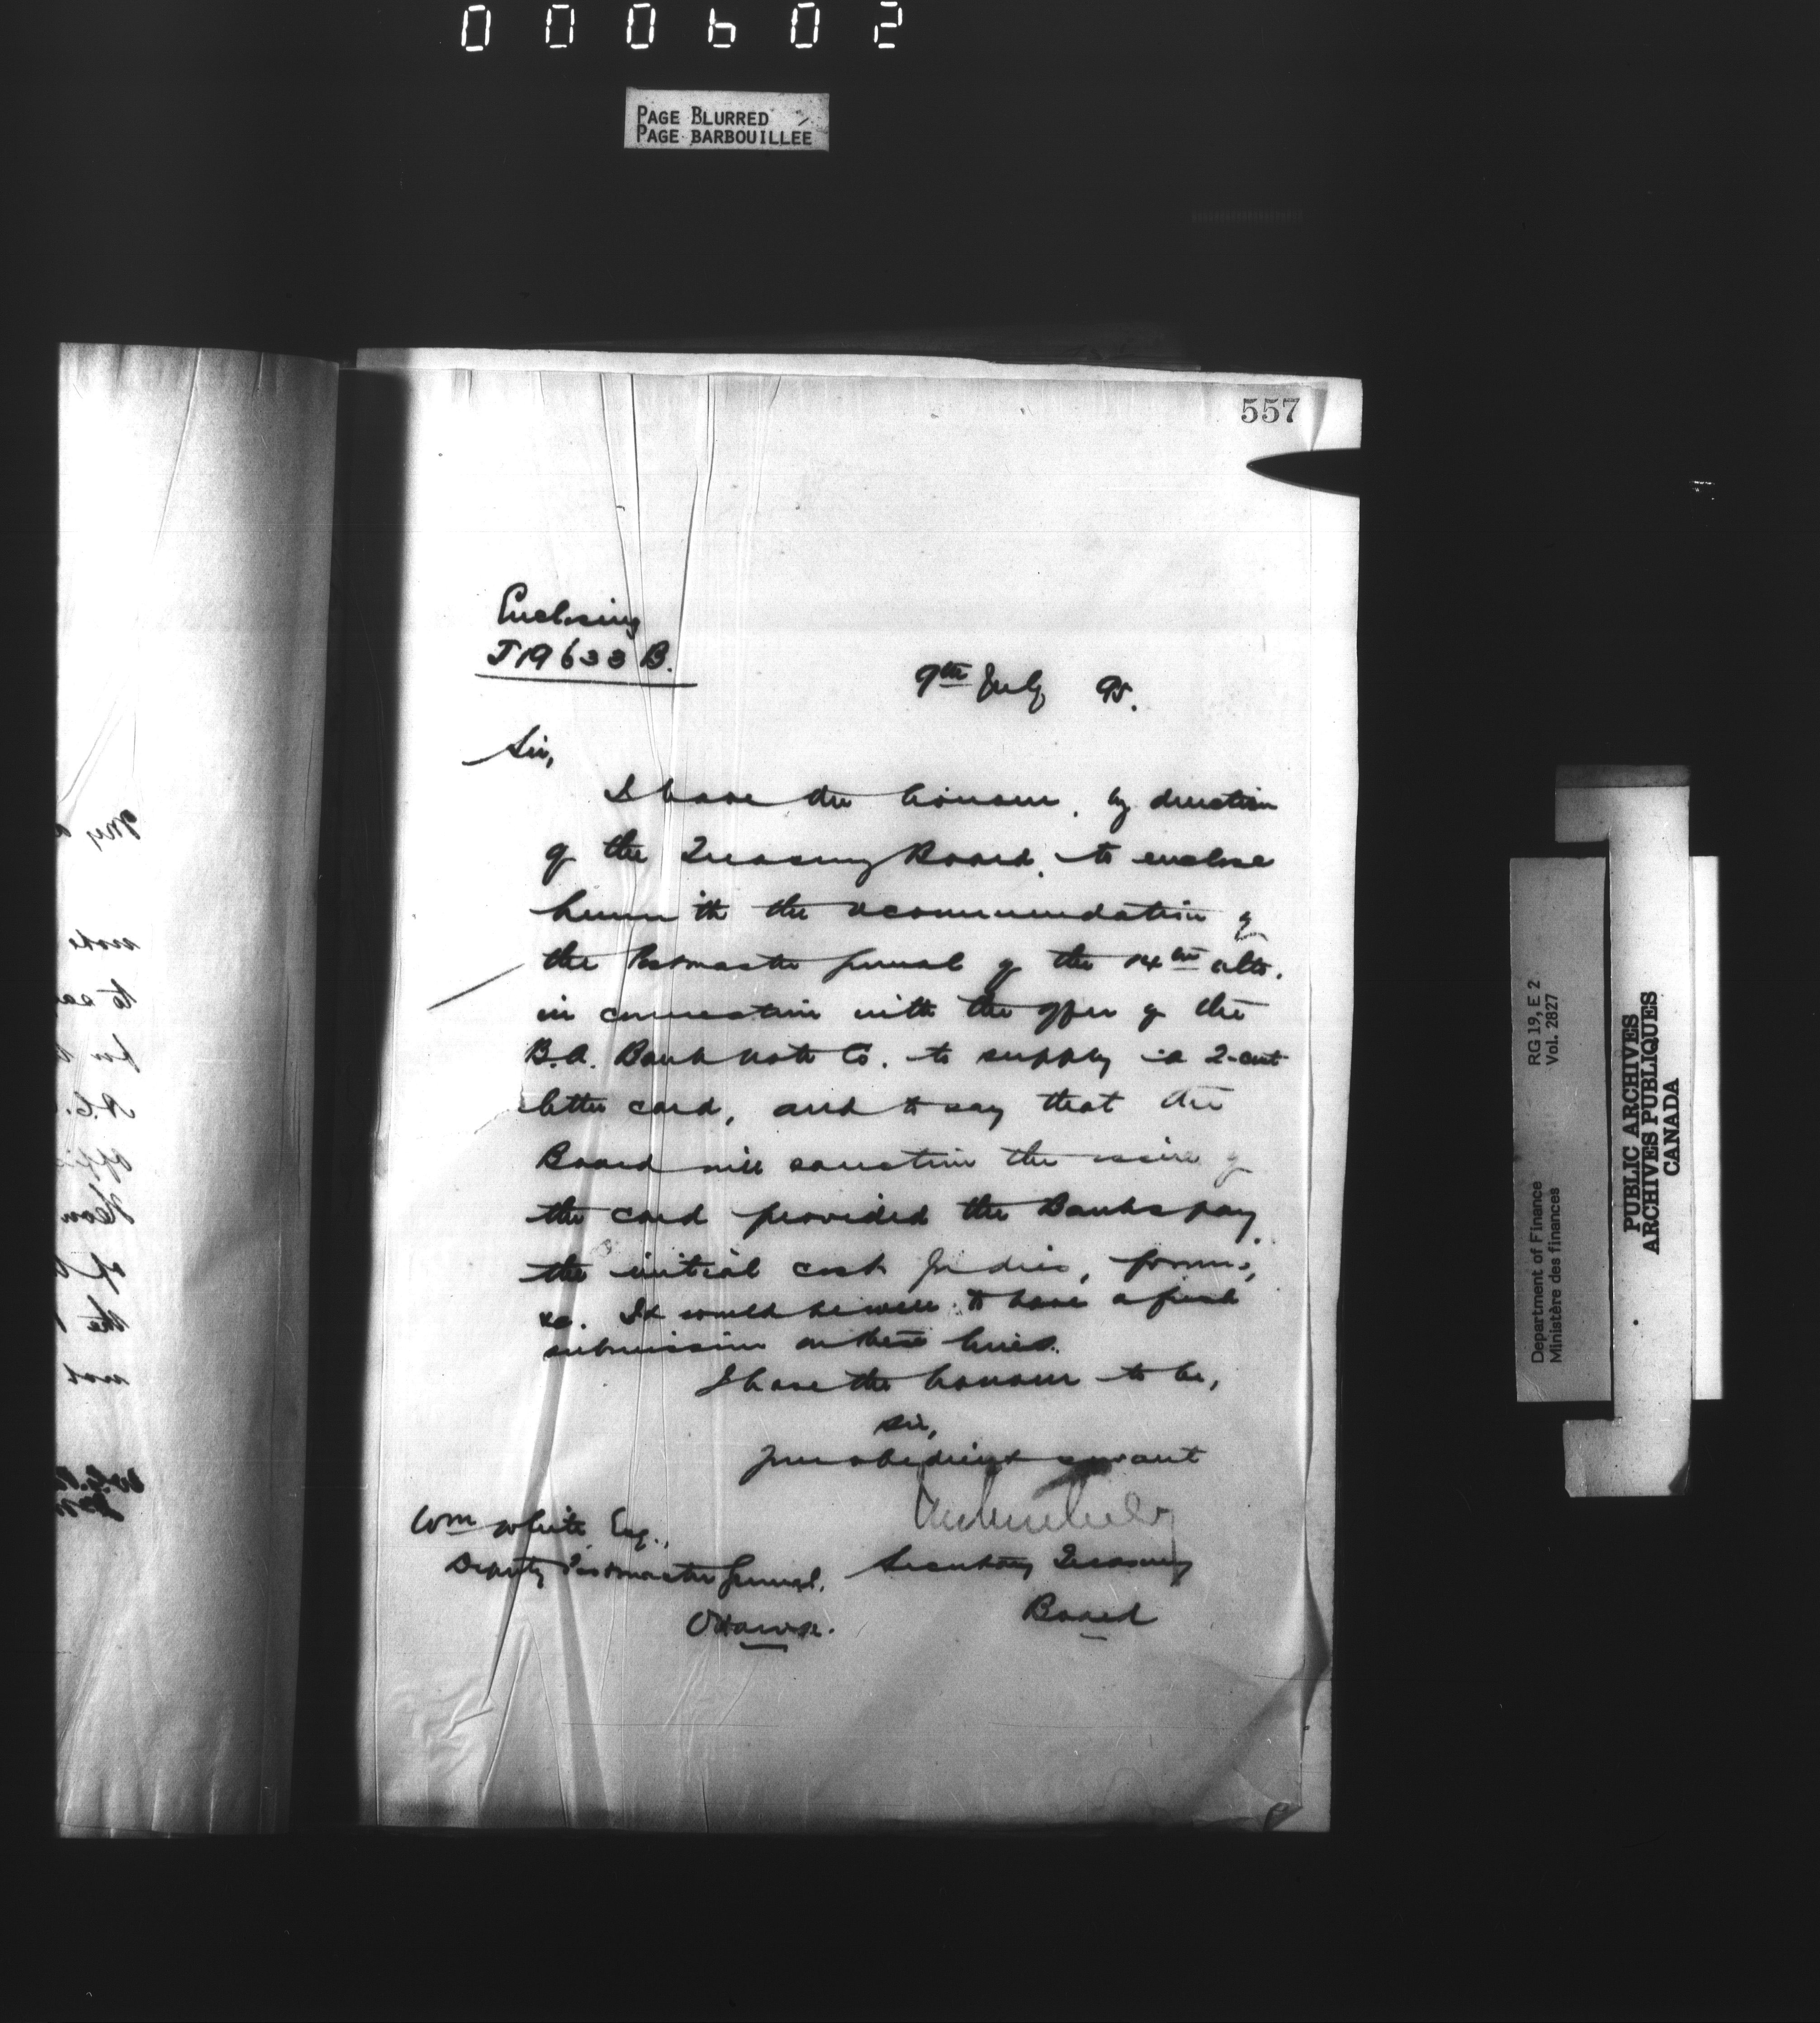 000602
PAGE BLURRED
PAGE BARBOUILLEE
557
Enclosing
J19633B.
9th July 95.
Sir,
I have the honour, by direction
of the Treasury Board, to enclose
herewith the recommendation of
the Postmaster General of the ulto.
in connection with the offer of the
B.A. Bank Note Co. to supply a 2-cent
letter card, and to say that the
Board will sanction the issue of
the card provided the Banks pay
the initial cost for dies, forms,
&c. It would be well to have a fresh
submission on these lines.
I have the honour to be,
Sir,
Your obedient servant
Secretary Treasury
Board
Wm White Esq.,
Deputy Postmaster General,
Ottawa.
RG 19, E 2
Vol. 2827
Department of Finance
Ministère des finances
PUBLIC ARCHIVES
ARCHIVES PUBLIQUES
CANADA
My
note
to
the
not